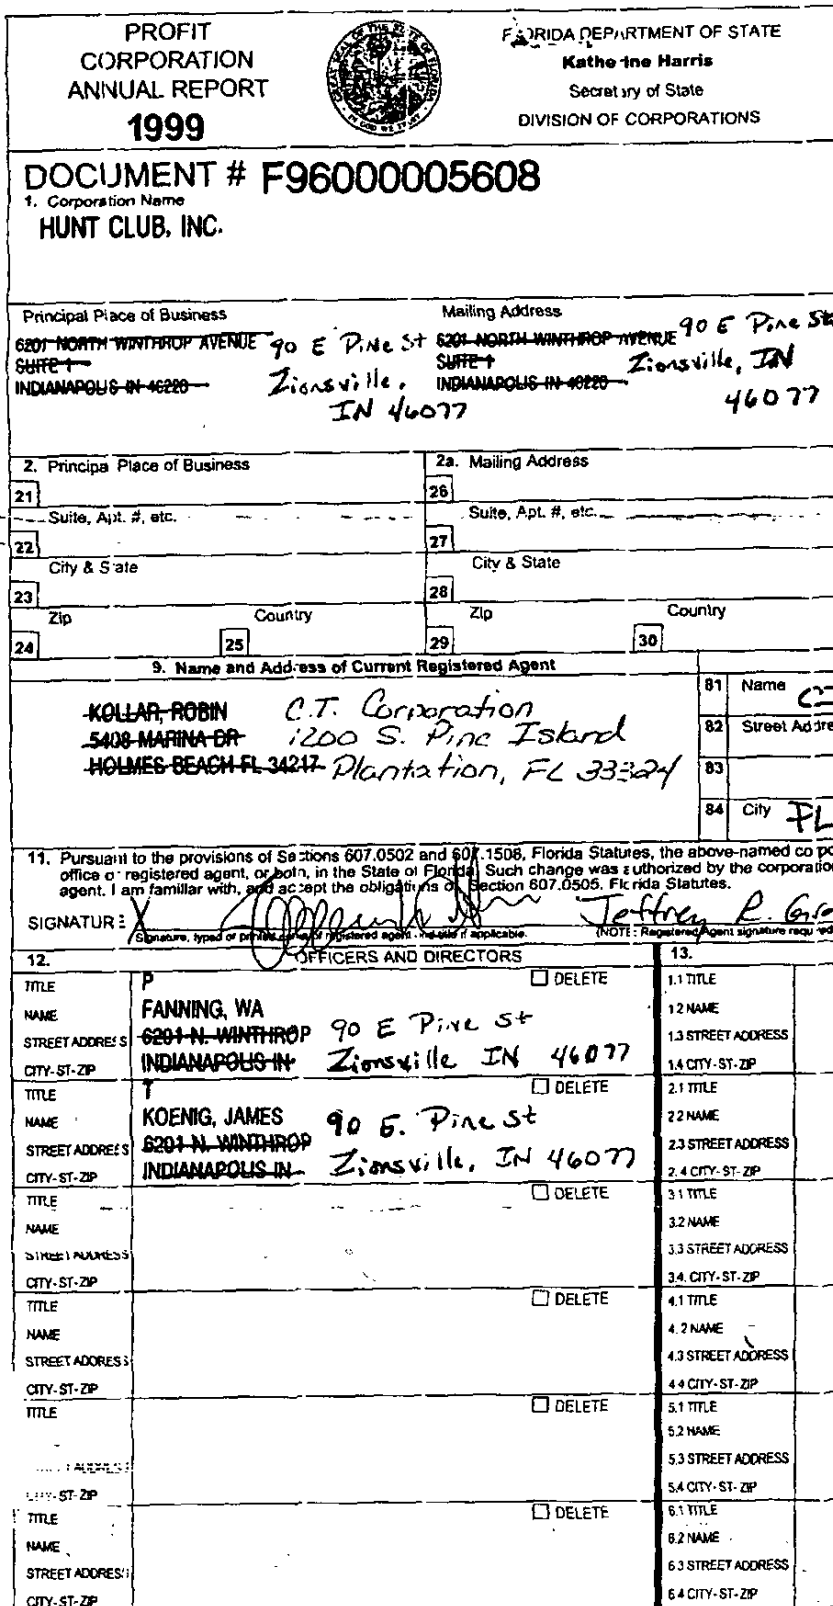 PROFIT
CORPORATION
ANNUAL REPORT
1999
FLORIDA DEPARTMENT OF STATE
Katherine Harris
Secretary of State
DIVISION OF CORPORATIONS
DOCUMENT # F96000005608
1. Corporation Name
HUNT CLUB, INC.
Principal Place of Business
6201 NORTH WINTHROP AVENUE 90 E Pine St
SUITE 1 Zionsville,
INDIANAPOLIS IN 46220 IN 46077
Mailing Address
6201 NORTH WINTHROP AVENUE 90 E Pine St
SUITE 1 Zionsville, IN
INDIANAPOLIS IN 46220 46077
2. Principal Place of Business
21
Suite, Apt. #, etc.
22
City & State
23
Zip Country
24 25
2a. Mailing Address
26
Suite, Apt. #, etc.
27
City & State
28
Zip Country
29 30
9. Name and Address of Current Registered Agent
KOLLAR, ROBIN C.T. Corporation
5408 MARINA DR 1200 S. Pine Island
HOLMES BEACH FL 34217 Plantation, FL 33324
81 Name
82 Street Addre
83
84 City PL
11. Pursuant to the provisions of Sections 607.0502 and 607.1508, Florida Statutes, the above-named corpo
office or registered agent, or both, in the State of Florida. Such change was authorized by the corporation
agent. I am familiar with, and accept the obligations of, Section 607.0505, Florida Statutes.
SIGNATURE X Jeffrey R.
Signature, typed or printed name of registered agent and title if applicable. (NOTE: Registered Agent signature required
12. OFFICERS AND DIRECTORS 13.
TITLE P DELETE
NAME FANNING, WA
STREET ADDRESS 6201 N. WINTHROP 90 E Pine St
CITY-ST-ZIP INDIANAPOLIS IN Zionsville IN 46077
1.1 TITLE
1.2 NAME
1.3 STREET ADDRESS
1.4 CITY-ST-ZIP
TITLE T DELETE
NAME KOENIG, JAMES 90 E. Pine St
STREET ADDRESS 6201 N. WINTHROP
CITY-ST-ZIP INDIANAPOLIS IN Zionsville, IN 46077
2.1 TITLE
2.2 NAME
2.3 STREET ADDRESS
2.4 CITY-ST-ZIP
TITLE DELETE
NAME
STREET ADDRESS
CITY-ST-ZIP
3.1 TITLE
3.2 NAME
3.3 STREET ADDRESS
3.4. CITY-ST-ZIP
TITLE DELETE
NAME
STREET ADDRESS
CITY-ST-ZIP
4.1 TITLE
4.2 NAME
4.3 STREET ADDRESS
4.4 CITY-ST-ZIP
TITLE DELETE
ADDRESS
CITY-ST-ZIP
5.1 TITLE
5.2 NAME
5.3 STREET ADDRESS
5.4 CITY-ST-ZIP
TITLE DELETE
NAME
STREET ADDRESS
CITY-ST-ZIP
6.1 TITLE
6.2 NAME
6.3 STREET ADDRESS
6.4 CITY-ST-ZIP